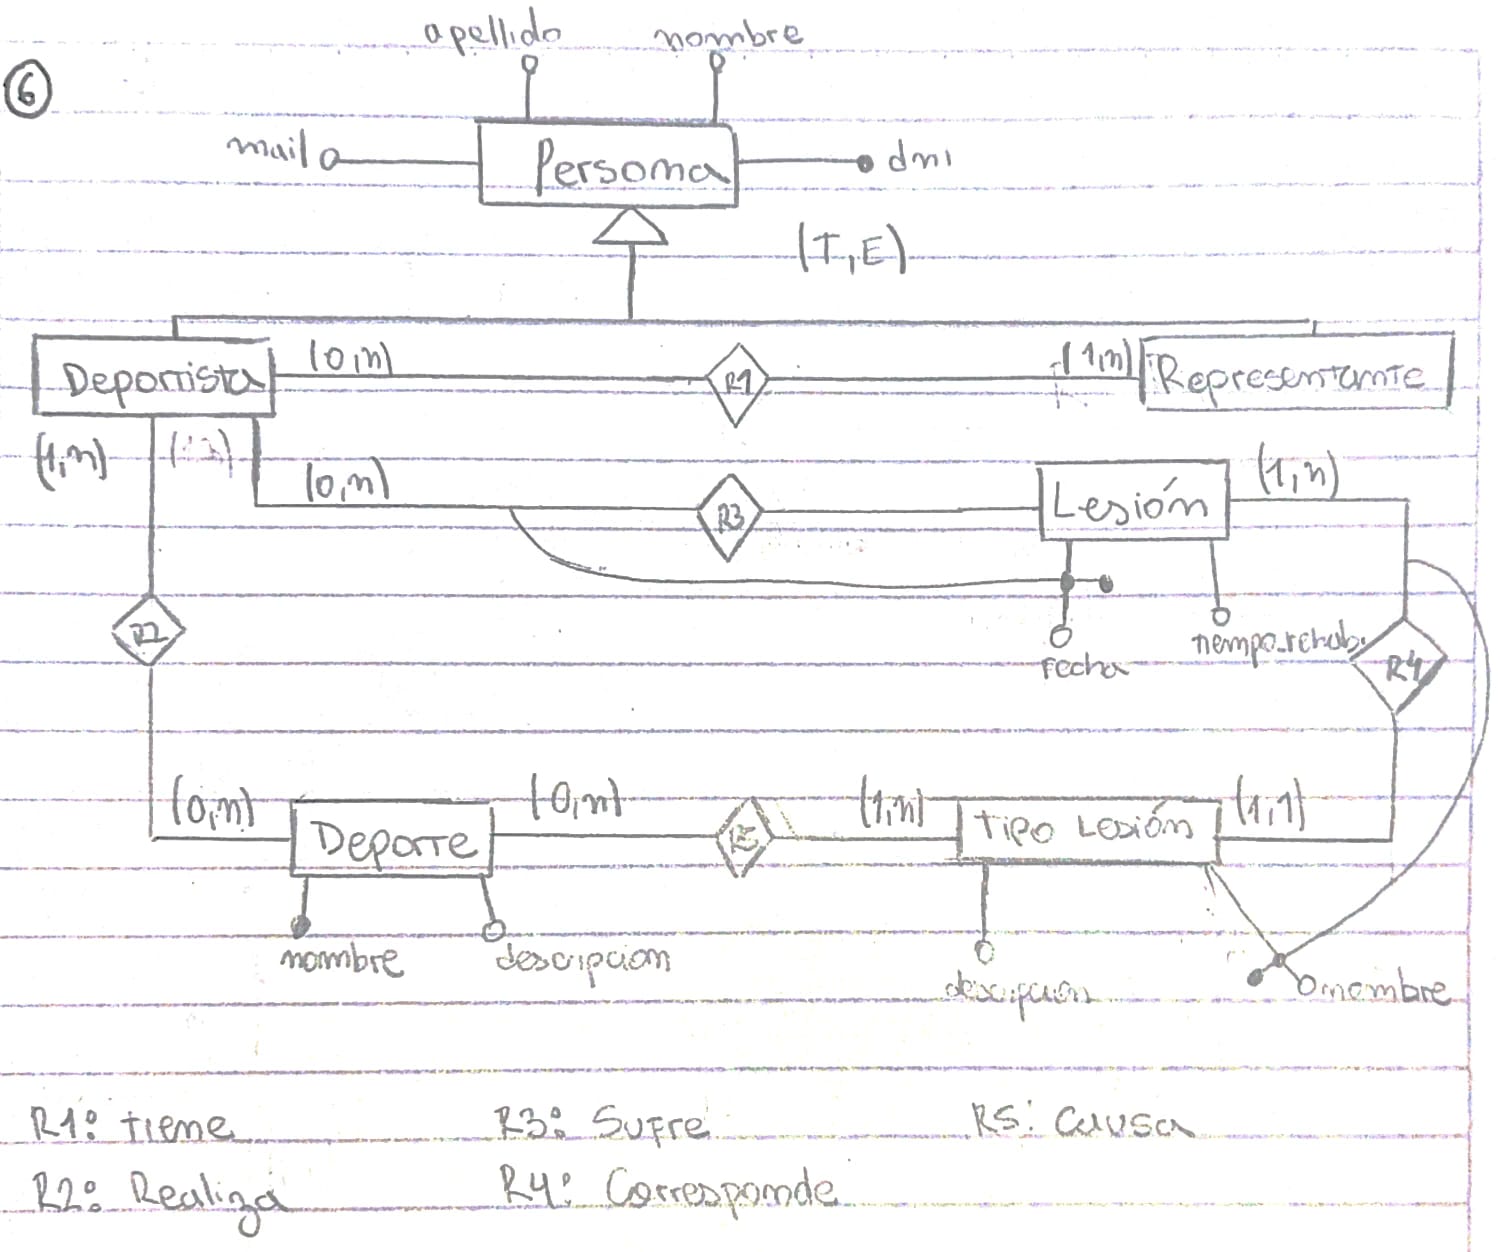 apellido nombre
6
mail Persona dni
(T,E)
Deportista (0,n) R1 (1,n) Representante
(1,n)
(0,n) R3 Lesión (1,n)
R2
fecha tiempo_rehab. R4
(0,n) Deporte (0,n) R5 (1,n) Tipo Lesión (1,1)
nombre descripcion
descripcion nombre
R1: tiene R3: Sufre R5: Causa
R2: Realiza R4: Corresponde